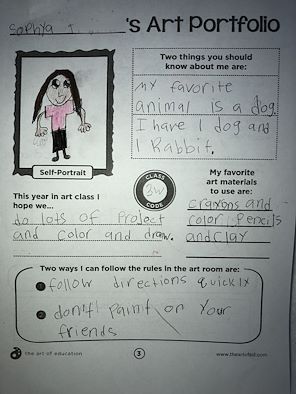 Sophya J. 's Art Portfolio
Two things you should
know about me are:
My favorite
animal is a dog
I have 1 dog and
1 Rabbit.
Self-Portrait
CLASS
3W
CODE
My favorite
art materials
to use are:
crayons and
color pencils
and clay
This year in art class I
hope we...
do lots of Project
and color and draw.
Two ways I can follow the rules in the art room are:
follow directions quickly
don't paint on your
friends
the art of education
3
www.theartofed.com